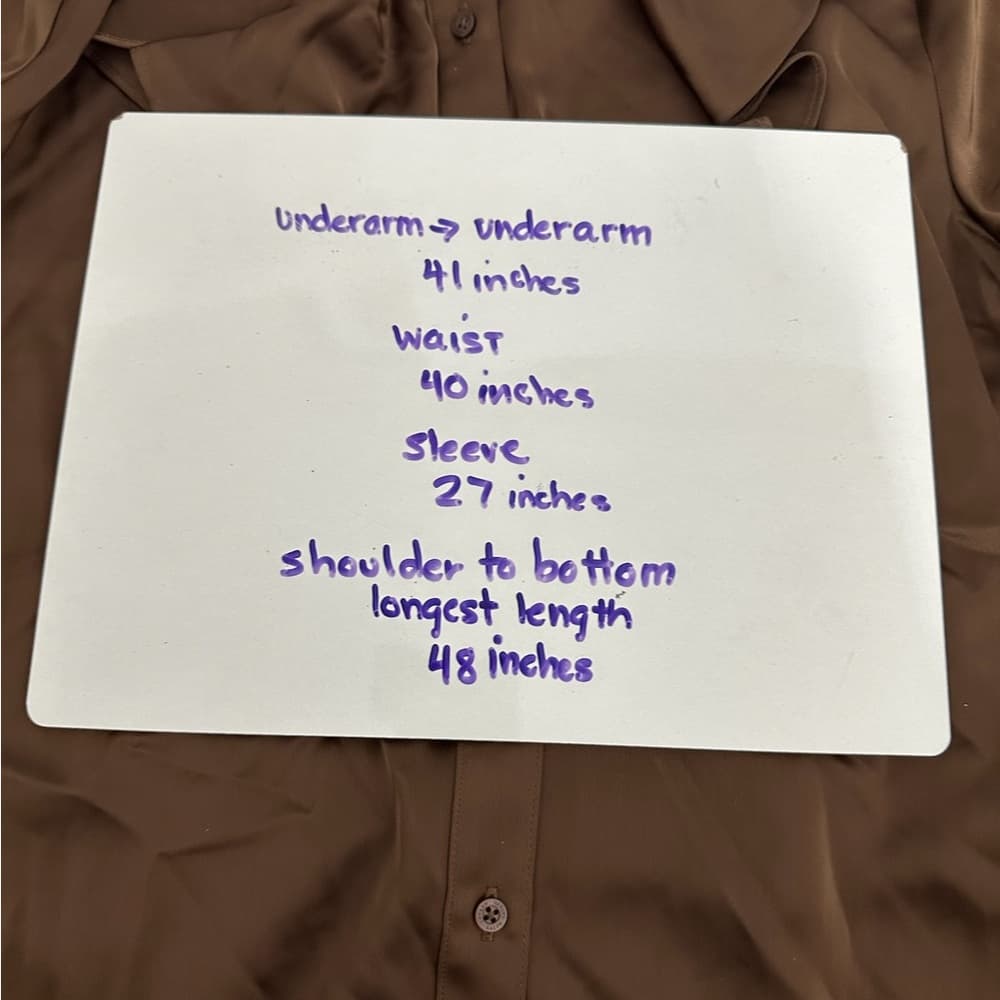 underarm → underarm
41 inches
waist
40 inches
sleeve
27 inches
shoulder to bottom
longest length
48 inches